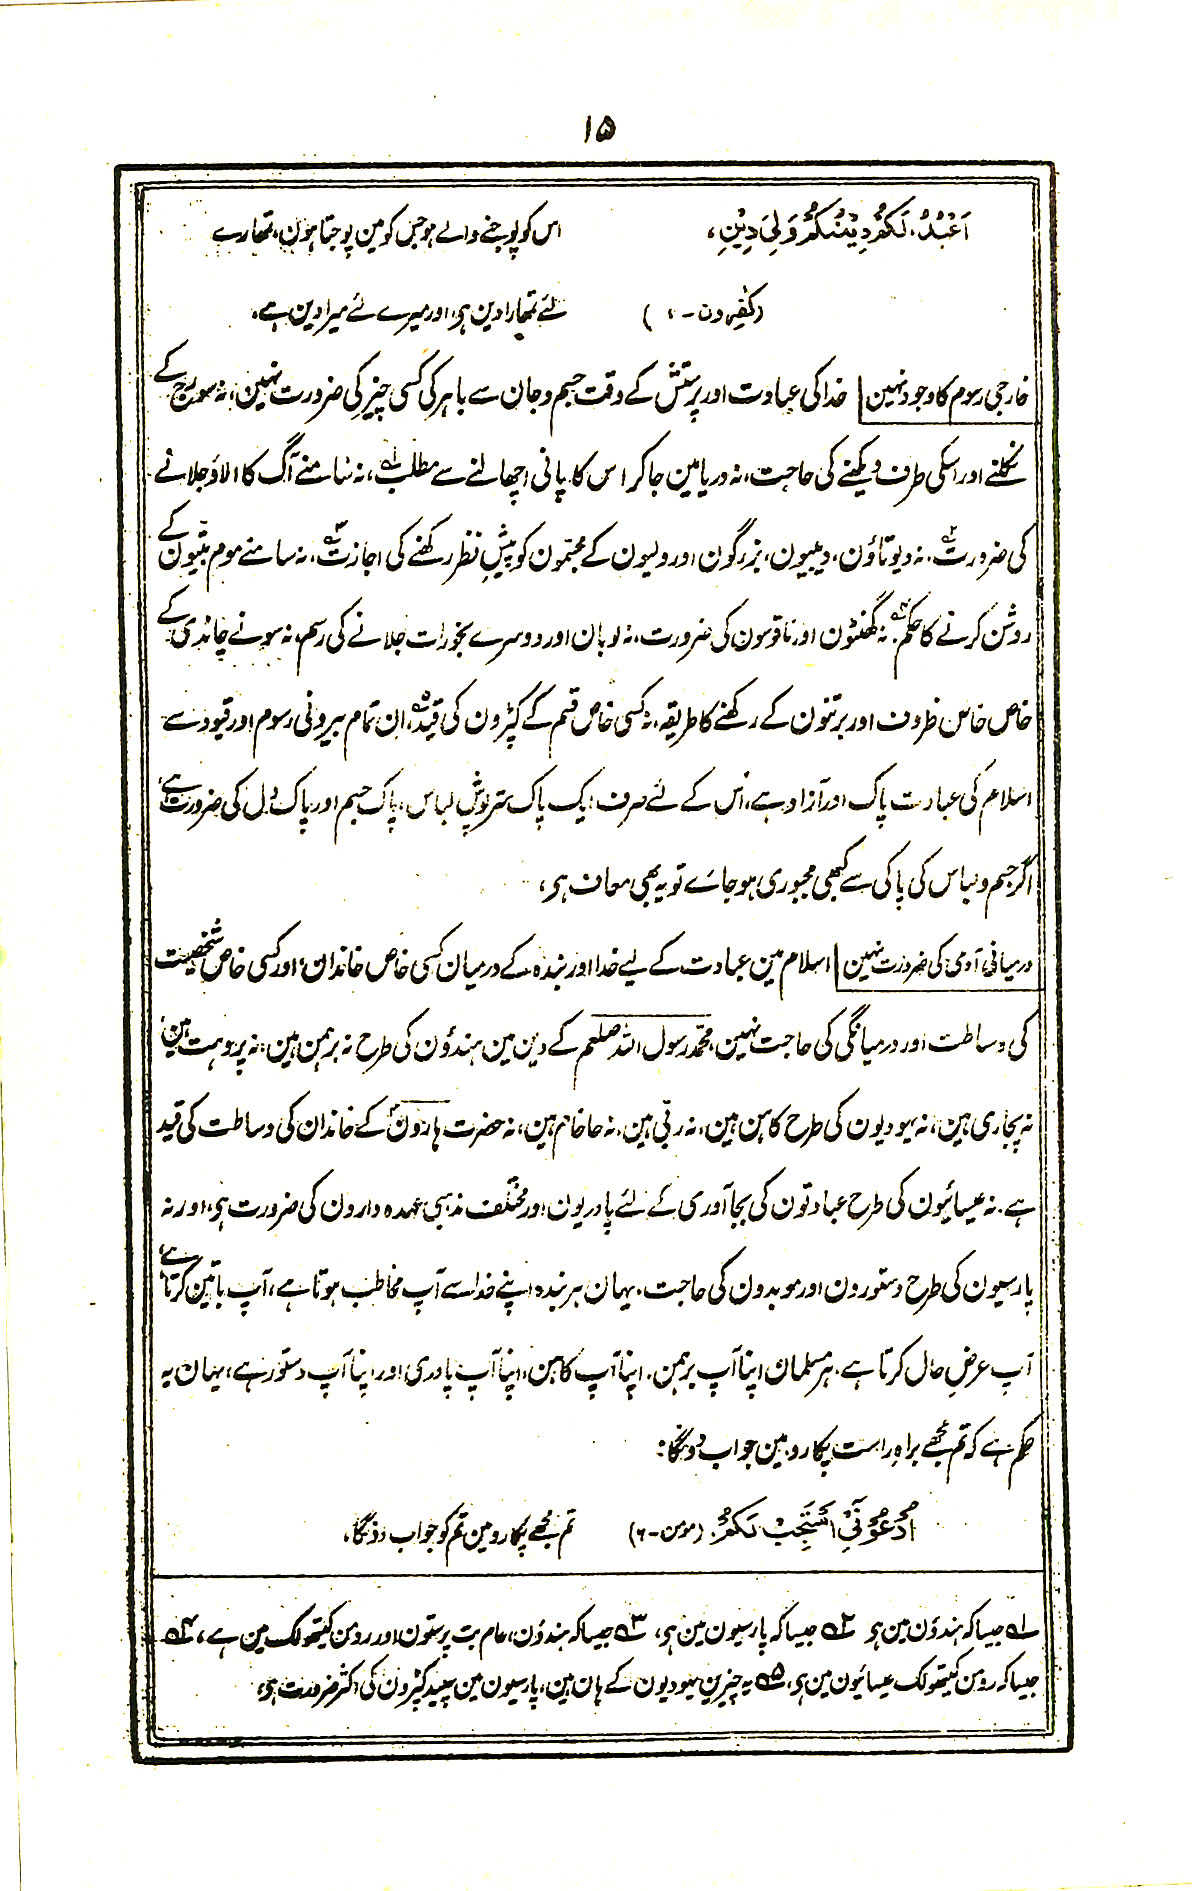 ۱۵
اَعْبُدُ، لَكُمْ دِيْنُكُمْ وَلِيَ دِيْنِ، اس کو پوجنے والے ہو جس کو مین پوجتا ہون، تمھارے
(کٰفرون - ۱) لئے تمھارا دین ہی، اور میرے لئے میرا دین ہے،
خارجی رسوم کا وجود نہین خدا کی عبادت اور پرستش کے وقت جسم و جان سے باہر کی کسی چیز کی ضرورت نہین، نہ سورج کے
نکلنے اور اسکی طرف دیکھنے کی حاجت، نہ دریا مین جا کر اس کا پانی اچھالنے سے مطلب۱؎، نہ سامنے آگ کا الاؤ جلانے
کی ضرورت۲؎، نہ دیوتاؤن، دیبیون، بزرگون اور ولیون کے مجسمون کو پیشِ نظر رکھنے کی اجازت۳؎، نہ سامنے موم بتیون کے
روشن کرنے کا حکم۴؎، نہ گھنٹون اور ناقوسون کی ضرورت، نہ لوبان اور دوسرے بخورات جلانے کی رسم، نہ سونے چاندی کے
خاص خاص ظروف اور برتنون کے رکھنے کا طریقہ، نہ کسی خاص قسم کے کپڑون کی قید۵؎، ان تمام بیرونی رسوم اور قیود سے
اسلام کی عبادت پاک اور آزاد ہے، اس کے لئے صرف ایک پاک ستر پوش لباس، پاک جسم اور پاک دل کی ضرورت ہے،
اگر جسم و لباس کی پاکی سے کبھی مجبوری ہو جائے تو یہ بھی معاف ہی،
درمیانی آدمی کی ضرورت نہین اسلام مین عبادت کے لیے خدا اور بندہ کے درمیان کسی خاص خاندان، اور کسی خاص شخصیت
کی وساطت اور درمیانگی کی حاجت نہین، محمد رسول اللہ صلعم کے دین مین ہندوُن کی طرح نہ برہمن ہین، نہ پروہت ہین،
نہ پجاری ہین، نہ یہودیون کی طرح کاہن ہین، نہ ربّی ہین، نہ حاخام ہین، نہ حضرت ہارونؑ کے خاندان کی وساطت کی قید
ہے، نہ عیسائیون کی طرح عبادتون کی بجا آوری کے لئے پادریون اور مختلف مذہبی عہدہ دارون کی ضرورت ہی، اور نہ
پارسیون کی طرح دستورون اور موبدون کی حاجت، یہان ہر بندہ اپنے خدا سے آپ مخاطب ہوتا ہے، آپ باتین کرتا ہے،
آپ عرضِ حال کرتا ہے، ہر مسلمان اپنا آپ برہمن، اپنا آپ کاہن، اپنا آپ پادری اور اپنا آپ دستور ہے، یہان یہ
حکم ہے کہ تم مجھے براہِ راست پکارو، مین جواب دونگا:
اُدْعُوْنِيْ اَسْتَجِبْ لَكُمْ، (مومن - ۶) تم مجھے پکارو مین تم کو جواب دونگا،
۱؎ جیسا کہ ہندوُن مین ہی ۲؎ جیسا کہ پارسیون مین ہی، ۳؎ جیسا کہ ہندوُن، عام بت پرستون اور رومن کیتھولک مین ہے، ۴؎
جیسا کہ رومن کیتھولک عیسائیون مین ہی، ۵؎ یہ چیزین یہودیون کے ہان ہین، پارسیون مین سپید کپڑون کی اکثر ضرورت ہی،